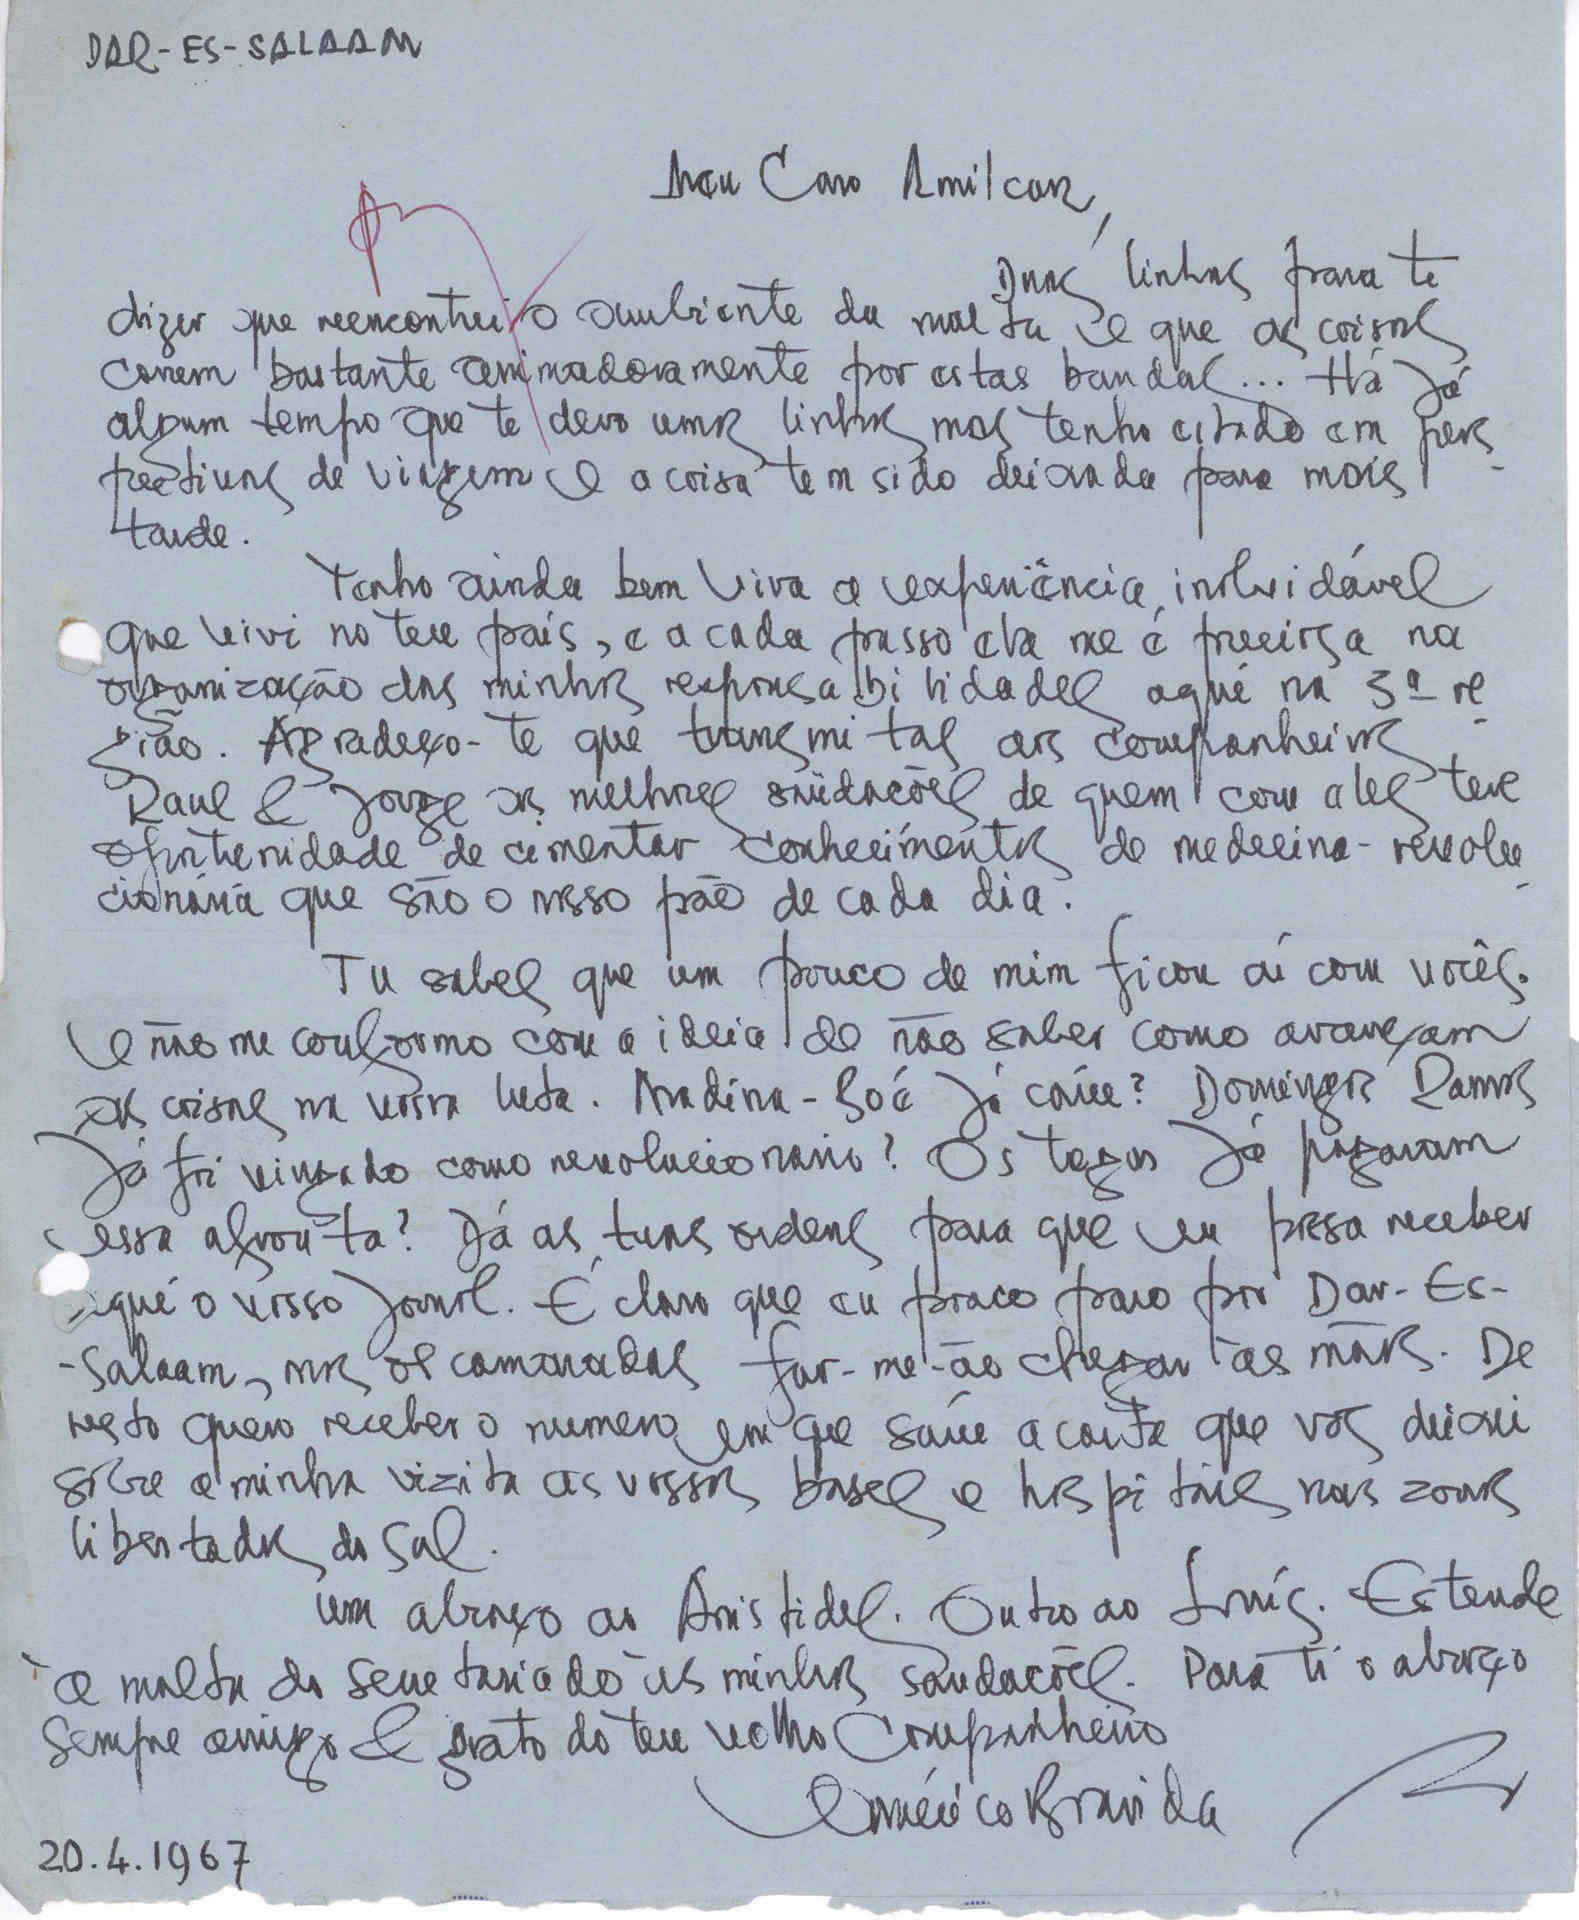 DAR-ES-SALAAM
Meu Caro Amilcar,
Duas linhas para te
dizer que reencontrei o ambiente da malta e que as coisas
correm bastante animadoramente por estas bandas... Há já
algum tempo que te devo umas linhas mas tenho estado em pers-
pectivas de viagem e a coisa tem sido deixada para mais
tarde.
Tenho ainda bem viva a experiência inolvidável
que vivi no teu país, e a cada passo ela me é precisa na
organização das minhas responsabilidades aqui na 3ª re-
gião. Agradeço-te que transmitas aos companheiros
Raul & Jorge as melhores saüdações de quem com eles teve
oportunidade de cimentar conhecimentos de medecina-revolu-
cionária que são o nosso pão de cada dia.
Tu sabes que um pouco de mim ficou aí com vocês.
E não me conformo com a ideia de não saber como avançam
as coisas na vossa luta. Madina-Boé já caíu? Domingos Ramos
já foi vingado como revolucionario? Os tugas já pagaram
essa afronta? Dá as tuas ordens para que eu possa receber
aqui o vosso jornal. É claro que eu pouco paro por Dar-Es-
-Salaam, mas os camaradas far-me-ão chegar às mãos. De
resto quero receber o numero em que saíu a carta que vos deixei
sôbre a minha vizita às vossas bases e hospitais nas zonas
libertadas do Sul.
Um abraço ao Aristides. Outro ao Luís. Estende
à malta do secretariado as minhas saudações. Para ti o abraço
sempre amigo & grato do teu velho Companheiro
Américo Boavida
20.4.1967